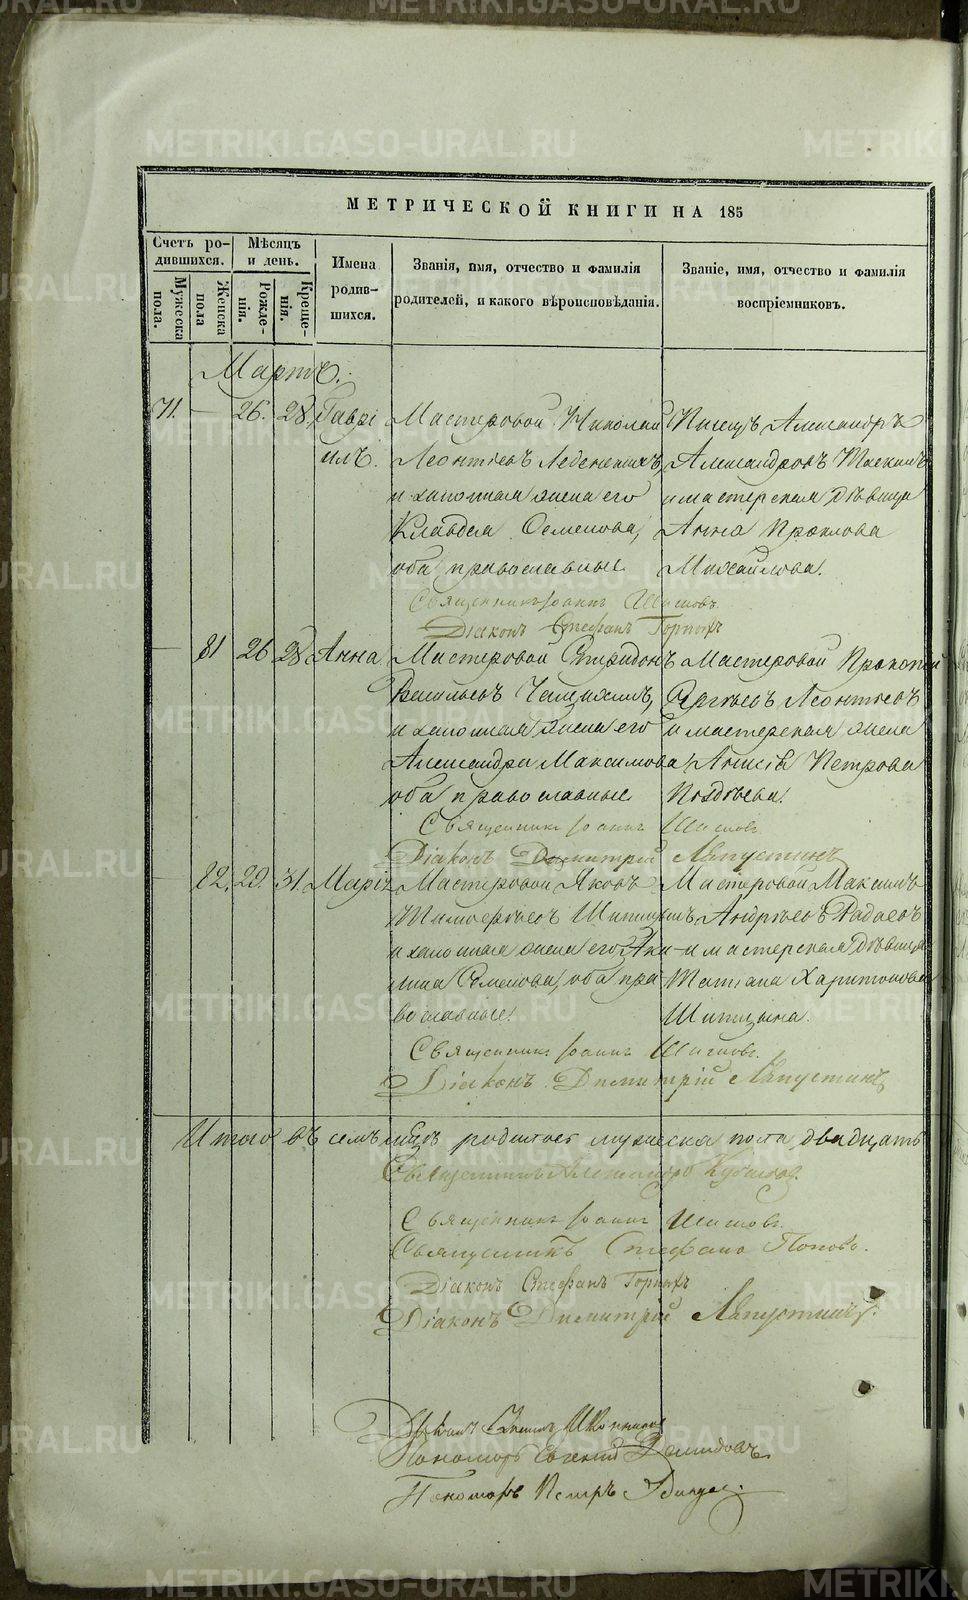 МЕТРИЧЕСКОЙ КНИГИ НА 185
Счетъ ро-
дившихся.
Мѣсяцъ
и день.
Мужеска
пола.
Женска
пола
Рожде-
нія.
Креще-
нія.
Имена
родив-
шихся.
Званія, имя, отчество и фамилія
родителей, и какого вѣроисповѣданія.
Званіе, имя, отчество и фамилія
воспріемниковъ.
Мартъ.
71. — 26. 28. Гаврі
илъ.
Мастеровой Николай
Леонтьевъ
и законная жена его
Клавдія Семенова,
оба православные
Писецъ Александръ
Александровъ
и мастерская дѣвица
Анна Проклова
Михайлова.
Священникъ Іоаннъ Шишовъ.
Діаконъ Стефанъ
— 81 26 28. Анна
Мастеровой Спиридонъ
Васильевъ
и законная жена его
Александра Максимова,
оба православные
Мастеровой Прокопій
Сергѣевъ Леонтьевъ
и мастерская жена
Анисія Петрова
Поздѣева.
Священникъ Іоаннъ Шишовъ
Діаконъ Димитрій Лапустинъ
— 82. 29. 31. Марія
Мастеровой Яковъ
Тимофѣевъ Шипицынъ
и законная жена его Аки-
лина Семенова, оба пра-
вославные.
Мастеровой Максимъ
Андрѣевъ
и мастерская дѣвица
Татіана Харитонова
Шипицына.
Священникъ Іоаннъ Шишовъ.
Діаконъ Димитрій Лапустинъ
Итого въ семъ мѣсяцѣ родилось мужеска пола двадцать
Священникъ Александръ
Священникъ Іоаннъ Шишовъ.
Священникъ Стефанъ Поповъ.
Діаконъ Стефанъ
Діаконъ Димитрій Лапустинъ.
Пономарь Евгеній Демидовъ
Пономарь Петръ
METRIKI.GASO-URAL.RU